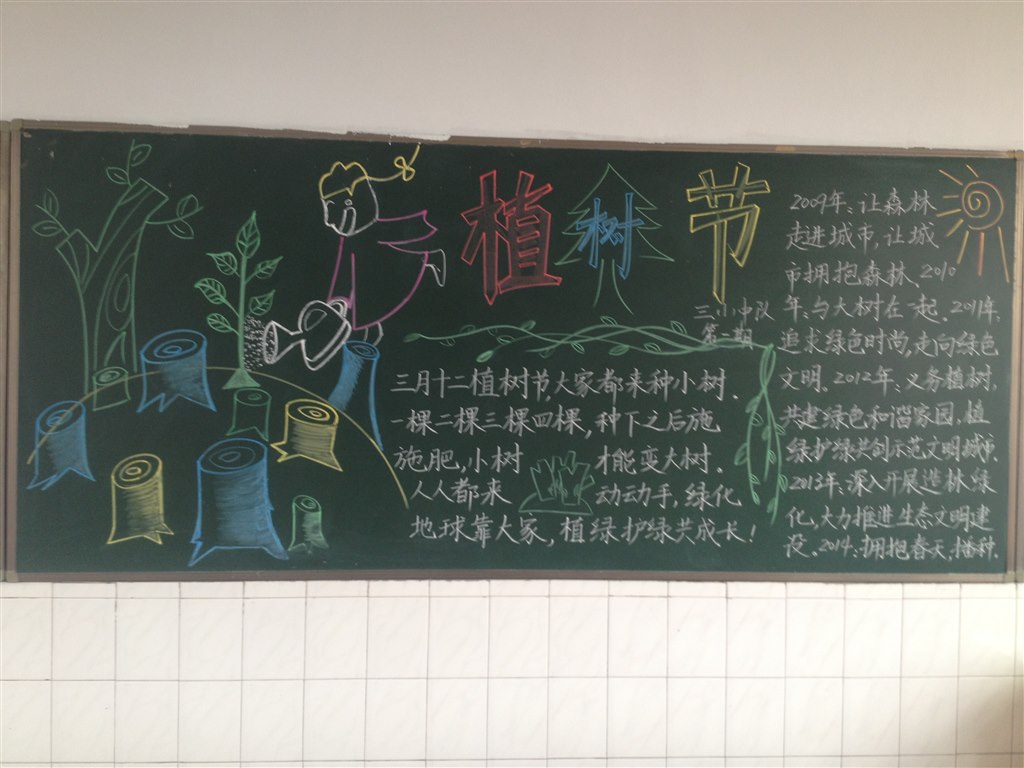 植树节
三小中队
第二期
三月十二植树节,大家都来种小树.
一棵二棵三棵四棵,种下之后施
施肥,小树才能变大树.
人人都来动动手,绿化
地球靠大家,植绿护绿共成长!
2009年:让森林
走进城市,让城
市拥抱森林、2010
年:与大树在一起.2011年:
追求绿色时尚,走向绿色
文明.2012年:义务植树,
共建绿色和谐家园.植
绿护绿共创示范文明城市.
2013年:深入开展造林绿
化,大力推进生态文明建
设.2014:拥抱春天,播种.